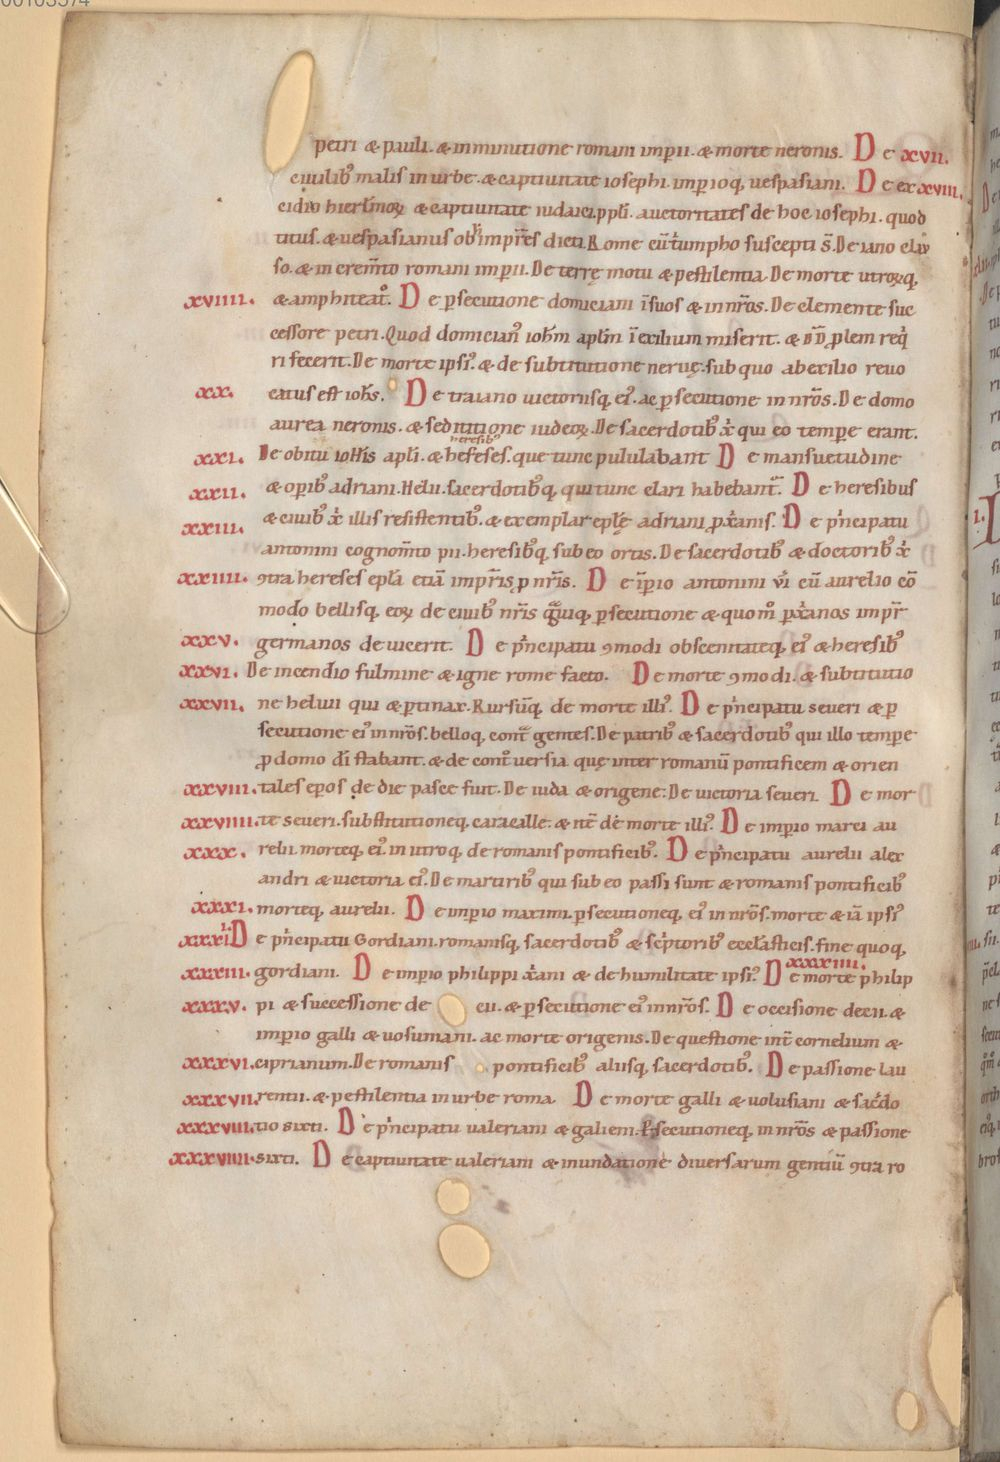 00103374
petri & pauli. & in minutione romani imꝑii. & morte neronis. De xvii.
ciuilibꝰ malis in urbe. & captiuitate iosephi. imꝑioq; uespasiani. De ex xviii.
cidio hierl̅moꝝ & captiuitate iudaici. ppl̅i. auctoritates de hoc iosephi. quod
titus. & uespasianus ob impr̅es dicti. Rome cū tͥumpho suscepti s̅. De iano clau
so. & in crem̅to romani imꝑii. De terrę motu & pestilentia. De morte utroꝝq;
xviiii. & amphiteatͦ. De ꝑsecutione domiciani ī suos & in nr̅os. De clemente suc
cessore petri. Quod domicianꝰ ioh̅m apl̅m ī exilium miserit. & dd̅ ꝓlem reqͥ
ri fecerit. De morte ipsiꝰ. & de substitutione neruę. sub quo ab exilio reuo
xx. catus est ioh̅s. De traiano uictoriisq; eiꝰ. ac ꝑsecutione in nr̅os. De domo
aurea neronis. & seditione iudeoꝝ. De sacerdotibꝰ xͥ qui eo tempꝑe erant.
heresibꝰ
xxi. De obitu ioh̅is apl̅i. & hereses. que tunc pululabant De mansuetudine
xxii. & oꝑibꝰ adriani. Helii. sacerdotibꝰq; qui tunc clari habebant̅. De heresibus
xxiii. & ciuibꝰ xͥ illis resistentibꝰ. & exemplar epl̅ę adriani ꝓ xͥanis. De pͥncipatu
antonini cognom̅to pii. heresibꝰq; sub eo ortis. De sacerdotibꝰ & doctoribꝰ xͥ
xxiiii. ꝯtra hereses epl̅a etiā impr̅is ꝓ nr̅is. De iꝑio antonini vͥi cū aurelio cō
modo bellisq; eoꝝ de ciuibꝰ nr̅is ꝑsecutione & quomͦ ꝑ xͥanos impr̅
xxv. germanos deuicerit. De pͥncipatu ꝯmodi obscenitateq; eiꝰ & heresibꝰ
xxvi. De incendio fulmine & igne rome facto. De morte ꝯmodi. & substitutio
xxvii. ne heluii qui & ꝑtinax. Rursūq; de morte illiꝰ. De pͥncipatu seueri & ꝑ
secutione eiꝰ in nr̅os. belloq; cont̅ gentes. De patribꝰ & sacerdotibꝰ qui illo tempꝑe
ꝓ domo di̅ stabant. & de contͦuersia quę inter romanū pontificem & orien
xxviii. tales ep̅os de die pasce fuit. De iuda & origene. De uictoria seueri. De mor
xxviiii. te seueri. substitutioneq; caracalle. & nec̅ de morte illiꝰ. De imꝑio marci au
xxx. relii. morteq; eiꝰ. in utroq; de romanis pontificibꝰ. De pͥncipatu aurelii alex
andri & uictoria eiꝰ. De martiribꝰ qui sub eo passi sunt & romanis pontificibꝰ
xxxi. morteq; aurelii. De imꝑio maximi. ꝑsecutioneq; eiꝰ in nr̅os. morte & iā ipsiꝰ
xxxii De pͥncipatu Gordiani. romanisq; sacerdotibꝰ & scͥptoribꝰ eccl̅asticis. fine quoq;
xxxiii. gordiani. De imꝑio philippi xͥani & de humilitate ipsiꝰ De xxxiiii. morte philip
xxxv. pi & successione decii. & ꝑsecutione eiꝰ in nr̅os. De occisione decii. &
imꝑio galli & uosumani. ac morte origenis. De questione int̅ cornelium &
xxxvi. ciprianum. De romanis pontificibꝰ aliisq; sacerdotibꝰ. De passione lau
xxxvii. rentii. & pestilentia in urbe roma. De morte galli & uolusiani & sacͬdo
xxxviii. tio sixti. De pͥncipatu ualeriani & galieni. ꝑsecutioneq; in nr̅os & passione
xxxviiii. sixti. De captiuitate ualeriani & inundatione diuersarum gentiū ꝯtra ro